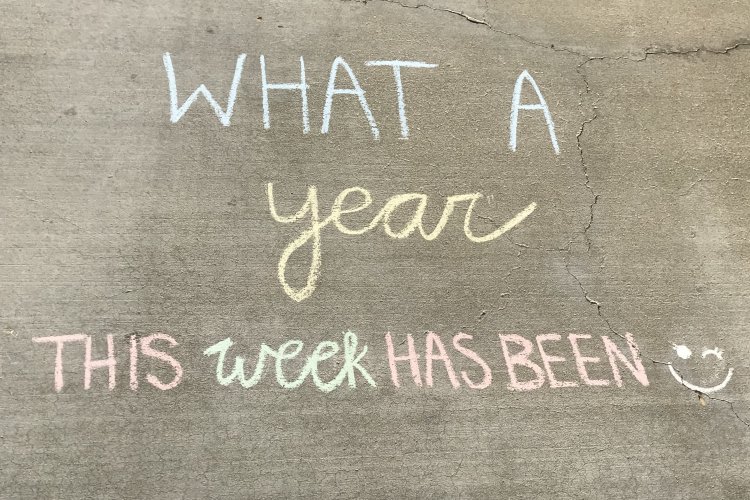 WHAT A
year
THIS week HAS BEEN